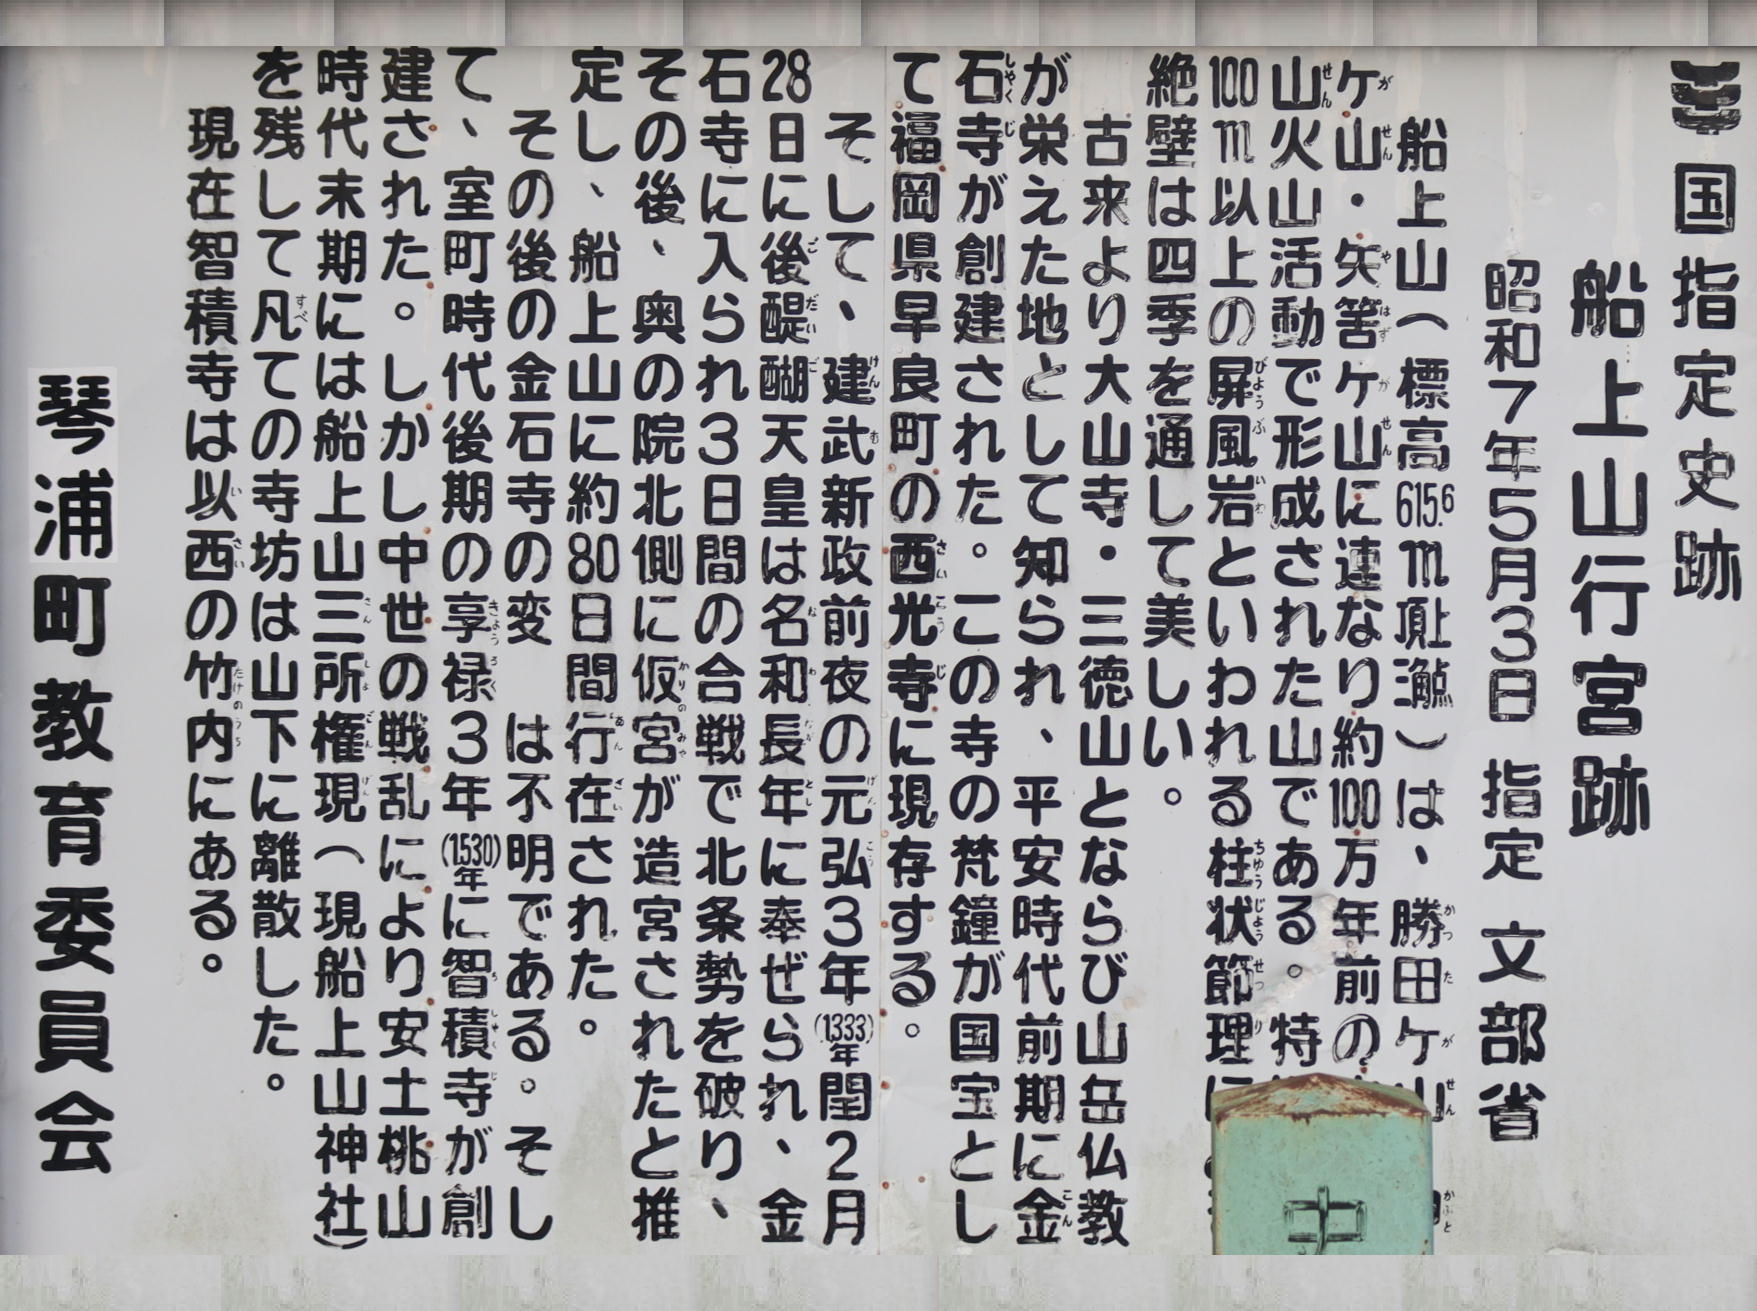 国指定史跡
船上山行宮跡
昭和7年5月3日 指定 文部省
船上山（標高615.6m頂上三角点）は、勝田ケ山
ケ山・矢筈ケ山に連なり約100万年前の
山火山活動で形成された山である。特
100m以上の屏風岩といわれる柱状節理に
絶壁は四季を通して美しい。
古来より大山寺・三徳山とならび山岳仏教
が栄えた地として知られ、平安時代前期に金
石寺が創建された。この寺の梵鐘が国宝とし
て福岡県早良町の西光寺に現存する。
そして、建武新政前夜の元弘3年(1333)年閏2月
28日に後醍醐天皇は名和長年に奉ぜられ、金
石寺に入られ3日間の合戦で北条勢を破り、
その後、奥の院北側に仮宮が造宮されたと推
定し、船上山に約80日間行在された。
その後の金石寺の変 は不明である。そし
て、室町時代後期の享禄3年(1530)年に智積寺が創
建された。しかし中世の戦乱により安土桃山
時代末期には船上山三所権現（現船上山神社）
を残して凡ての寺坊は山下に離散した。
現在智積寺は以西の竹内にある。
琴浦町教育委員会